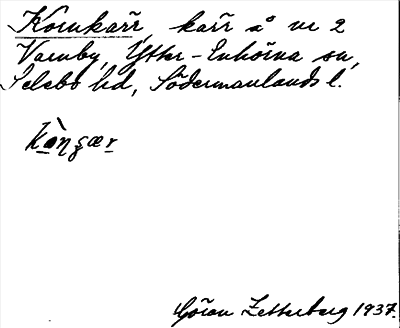 Kornkärr, kärr å nr 2
Varnby, Ytter-Enhörna sn,
Selebo hd, Södermanlands l.
Göran Zetterberg 1937.